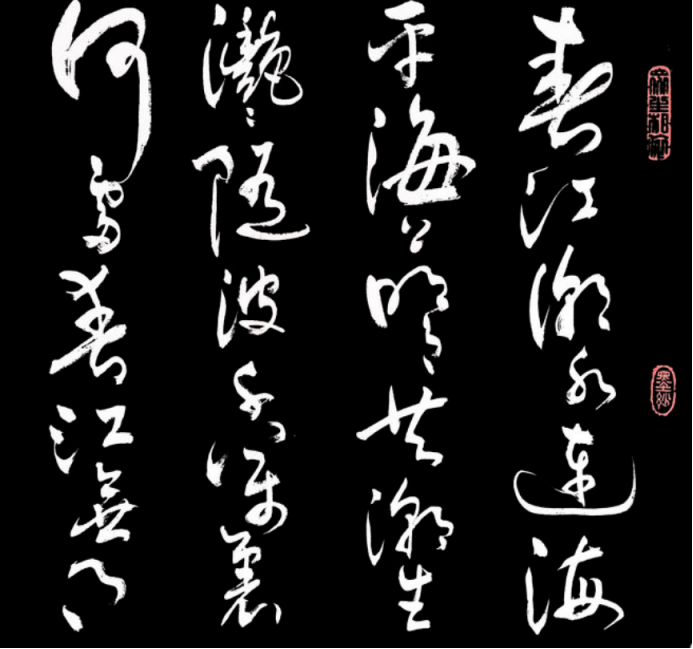 春江潮水連海
平海上明月共潮生
灩〻隨波千萬裏
何處春江無月